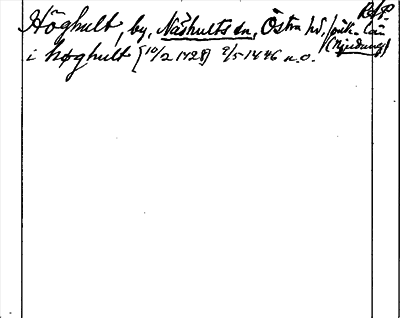 Höghult, by, Näshults sn, Östra hd, Jönk. län
(Njudung)
i høghult [10/2 1428] 2/5 1446 a.o.